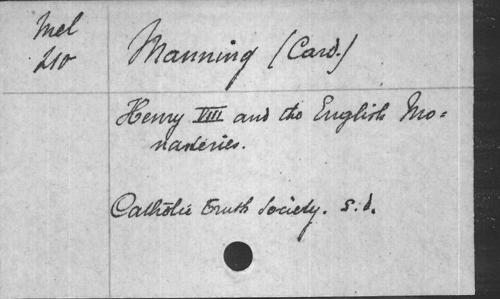 Mel
210
Manning (Card.)
Henry VIII and the English Mo=
nasteries.
Catholic Truth Society. s.d.